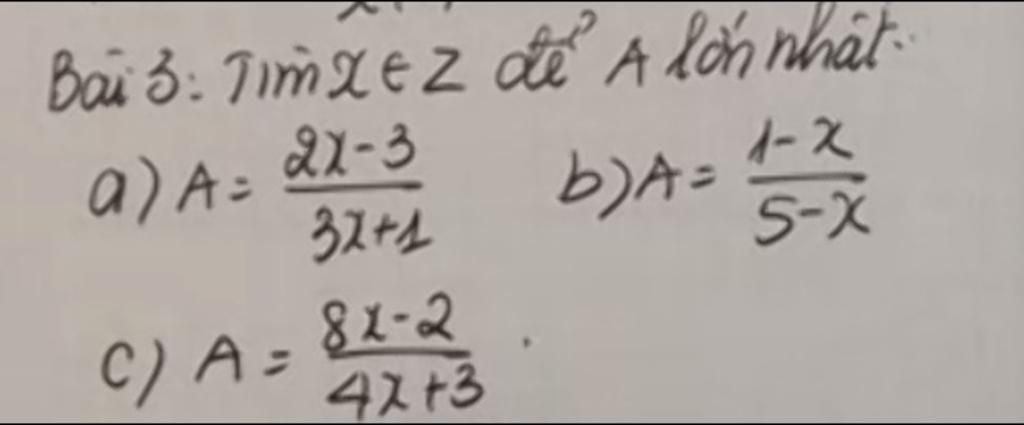 Bài 3: Tìm x ∈ Z để A lớn nhất.
a) A = (2x-3)/(3x+1) b) A = (1-x)/(5-x)
c) A = (8x-2)/(4x+3).